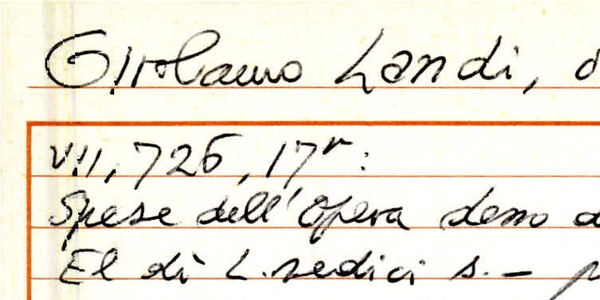 Girolamo Landi,
VII, 726, 17r:
Spese dell'Opera deno
El dì L. sedici s. –